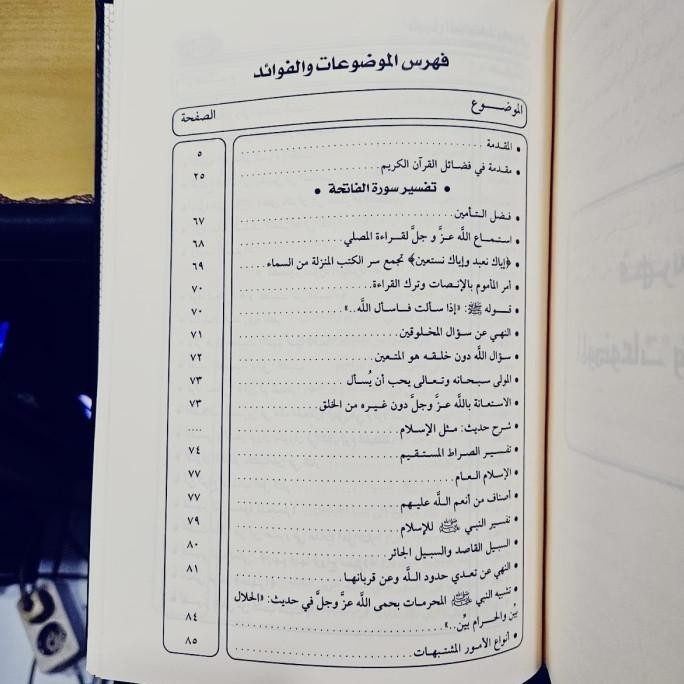 فهرس الموضوعات والفوائد
الموضـــوع الصفحة
• المقدمة ........................ ٥
• مقدمة في فضائل القرآن الكريم ........................ ٢٥
• تفسير سورة الفاتحة •
• فـضـل الـتـأمين ........................ ٦٧
• استـمـاع اللَّه عـزَّ و جلَّ لقراءة المصلي ........................ ٦٨
• ﴿إياك نعبد وإياك نستعين﴾ تجمع سر الكتب المنزلة من السماء ... ٦٩
• أمر المأموم بالإنـصات وترك القراءة ........................ ٧٠
• قـــولـه ﷺ: «إذا سألت فـاسأل اللَّه..» ........................ ٧٠
• النهي عن سؤال المخلـوقين ........................ ٧١
• سـؤال اللَّه دون خلـقـه هو المتـعين ........................ ٧٢
• المولى سبـحـانه وتـعـالى يحب أن يُسـأل ........................ ٧٣
• الاستعـانة باللَّه عـزَّ وجلَّ دون غيـره من الخلق ........................ ٧٣
• شرح حديث: مثـل الإسـلام ........................ ....
• تفـسـيـر الصـراط المسـتـقـيم ........................ ٧٤
• الإسلام العـام ........................ ٧٧
• أصناف من أنعم الـلَّـه عليـهم ........................ ٧٧
• تفسير النبي ﷺ للإسلام ........................ ٧٩
• السبيل القاصد والسبيل الجائر ........................ ٨٠
• النهي عن تعدي حدود الـلَّه وعن قربانـها ........................ ٨١
• تشبيه النبي ﷺ المحرمات بحمى اللَّه عزَّ وجلَّ في حديث: «الحلال
بيِّن والحـرام بيِّن..» ........................ ٨٤
• أنواع الأمـور المشـتبـهات ........................ ٨٥